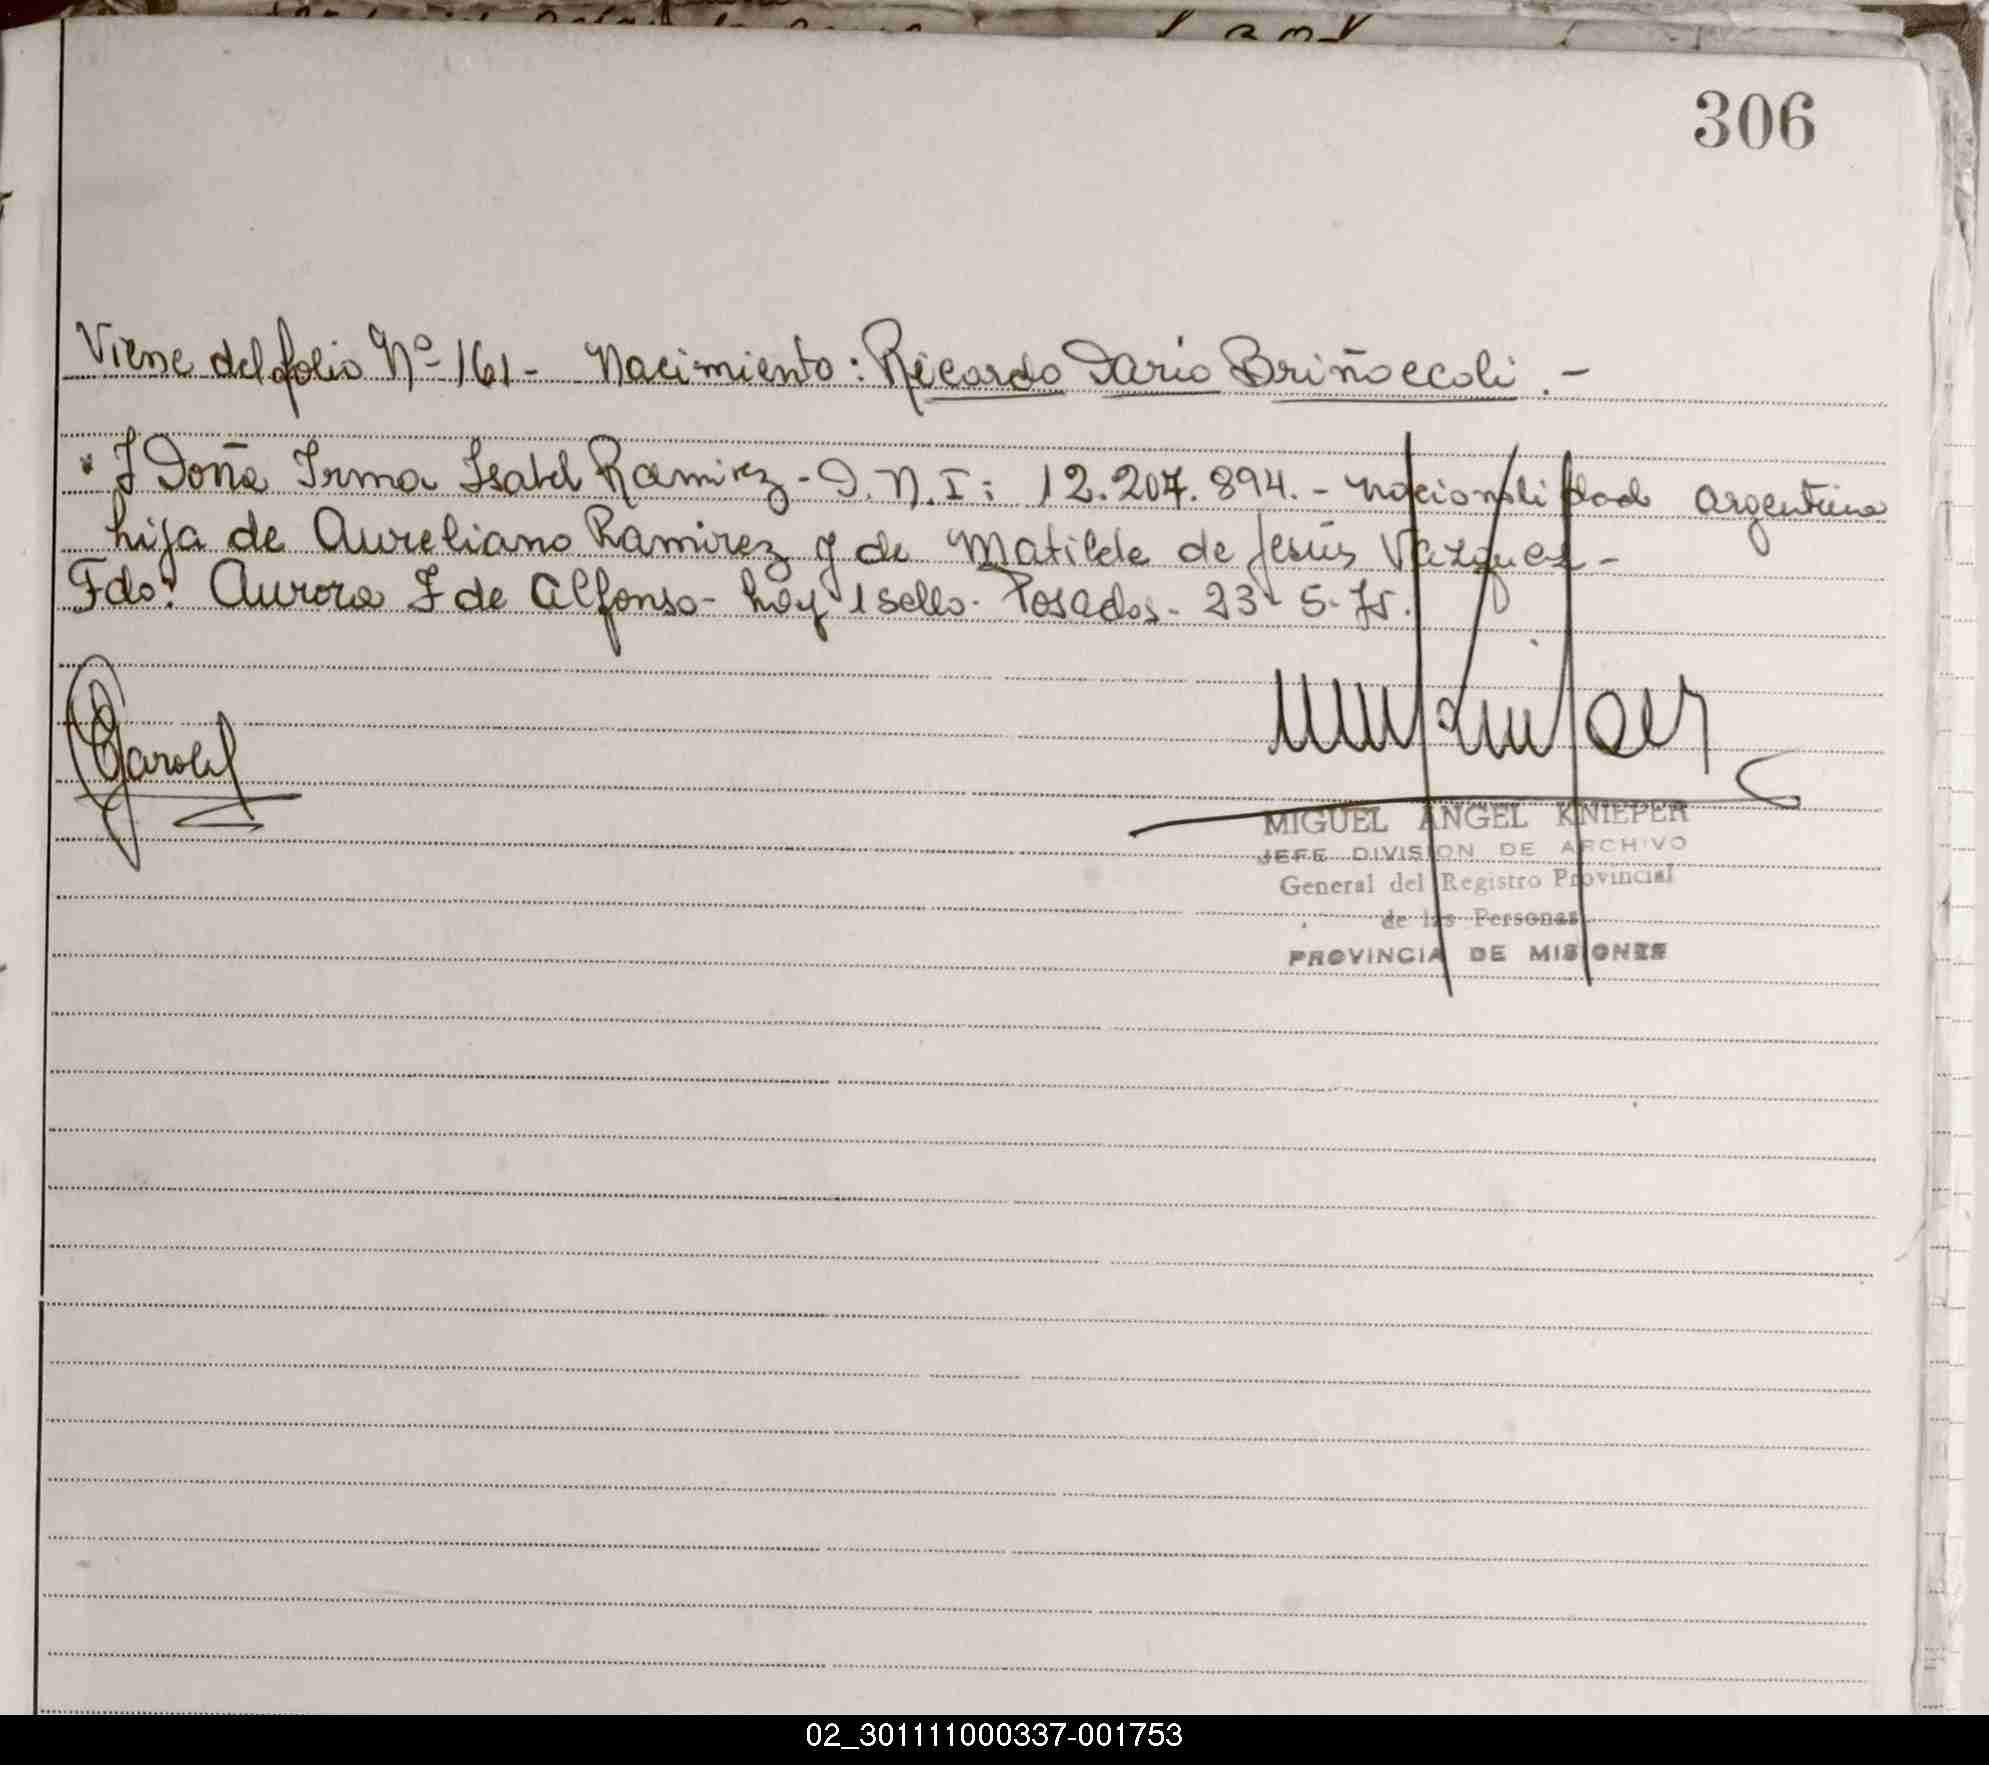 306
Viene del folio Nº 161 - Nacimiento: Ricardo Dario Briñoccoli.-
" Y Doña Irma Isabel Ramirez - D.N.I: 12.207.894. - nacionalidad argentina
hija de Aureliano Ramirez y de Matilde de Jesús Vazquez -
Fdo: Aurora F de Alfonso - hay 1 sello - Posadas - 23 - 5 - 75.
MIGUEL ANGEL KNIEPER
JEFE DIVISION DE ARCHIVO
General del Registro Provincial
de las Personas
PROVINCIA DE MISIONES
02_301111000337-001753